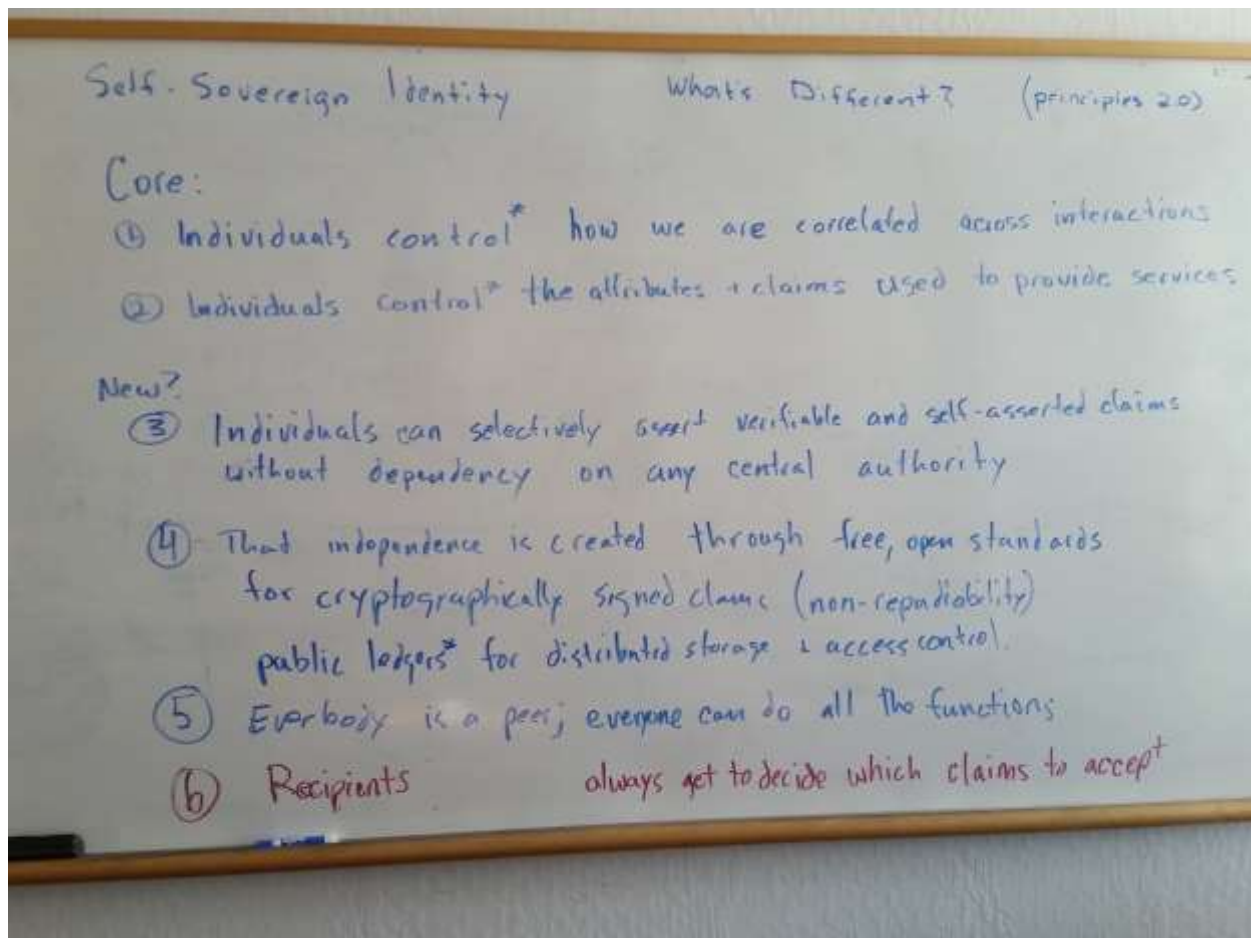 Self-Sovereign Identity What's Different? (principles 2.0)
Core:
① Individuals control* how we are correlated across interactions
② Individuals control* the attributes + claims used to provide services
New?
③ Individuals can selectively assert verifiable and self-asserted claims
without dependency on any central authority
④ That independence is created through free, open standards
for cryptographically signed claims (non-repudiability)
public ledgers* for distributed storage + access control.
⑤ Everbody is a peer; everyone can do all the functions
⑥ Recipients always get to decide which claims to accept